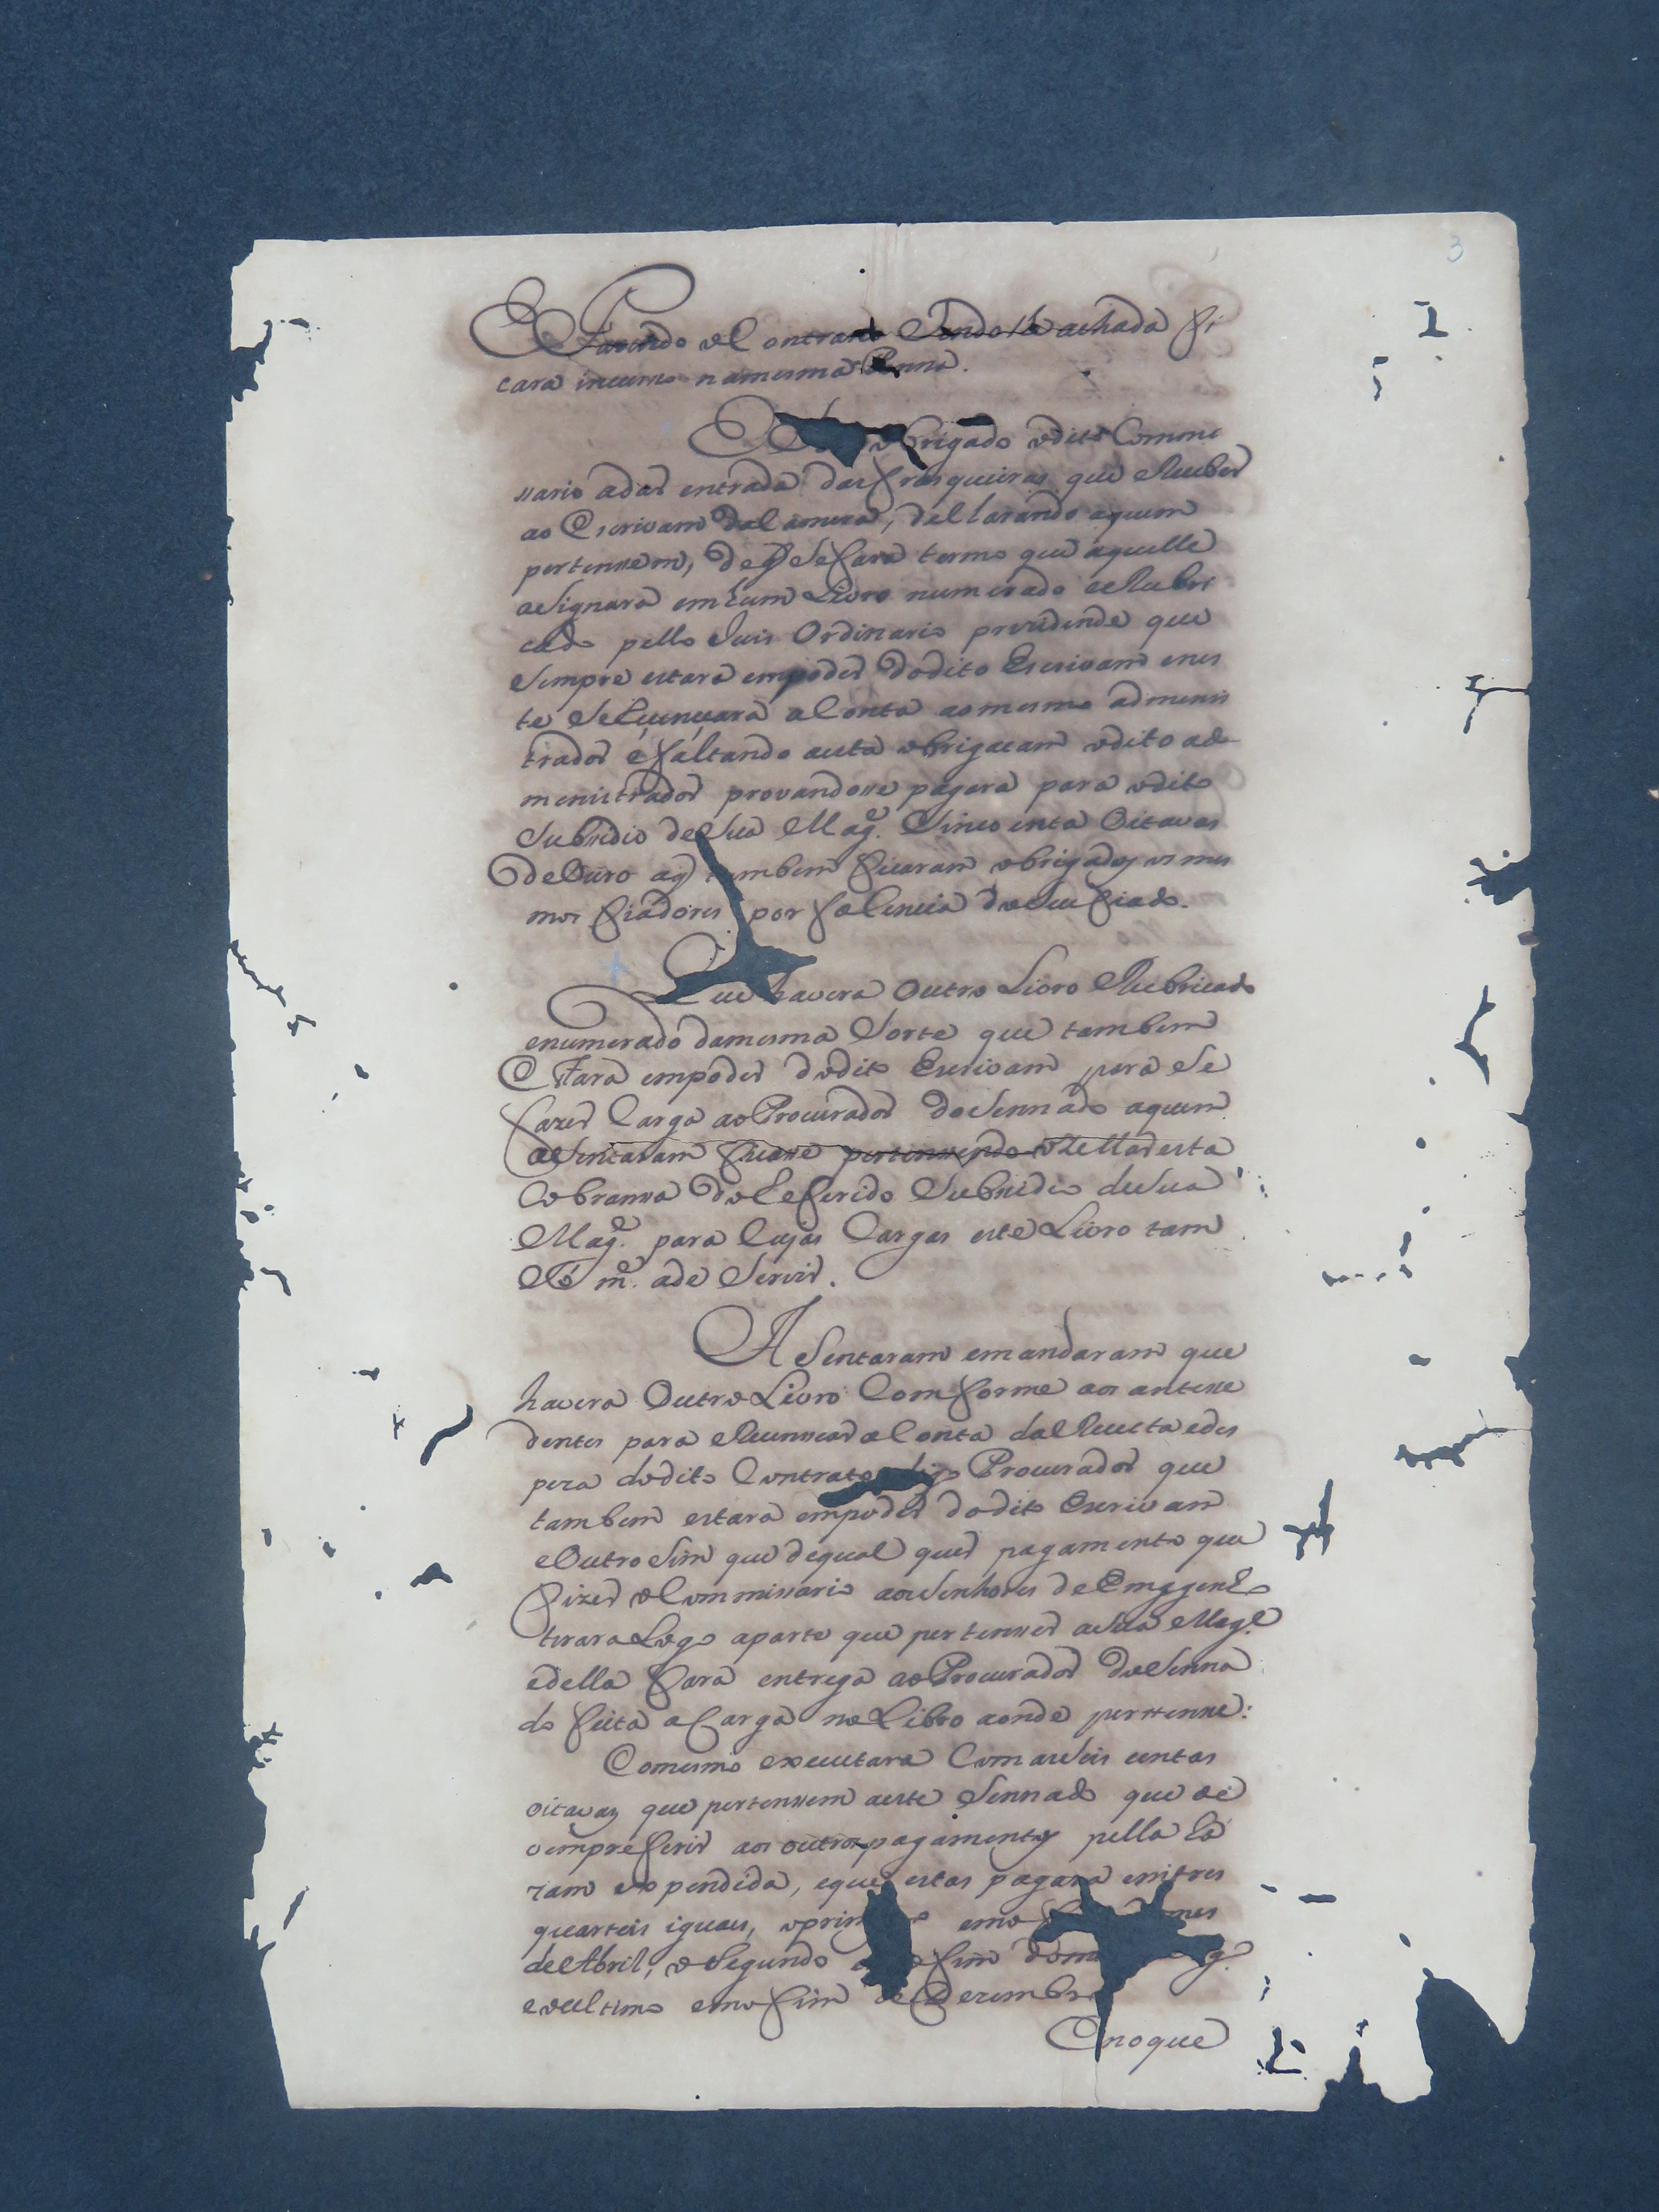 3
E Fazendo o Contrario Sendolhe achada fi
cara incurso namesma Penna.
obrigado odito Commi
ssario adar entrada das frasqueiras que Reseber
ao Escrivam daCamera, deClarando aquem
pertenssem, deq̃ Sefara termo que aquelle
aSignara emhum Livro numerado eRubri
cado pello Juis Ordinario prezidende que
Sempre estara empoder dodito Escrivam enes
te SeLhe aConta aomesmo admenis
trador e faltando aesta obrigacam odito ad
menistrador provandosse pagara para odito
Subsidio deSua Magᵉ. Sincoenta Oitavas
DeOuro aq̃ tambem ficaram obrigados os mes
mos fiadores por falencia doSeu fiado.
Que havera Outro Livro Rubricado
enumerado damesma Sorte que tambem
EStara empoder dodito Escrivam pera Se
fazer Carga aoProcurador doSennado aquem
aSentaram ficasse pertenssendo oZellar esta
Cobranssa doReferido Subsidio deSua
Magᵉ. para Cujas Cargas este Livro tam
Sô mᵉ. ade Servir.
ASentaram emandaram que
havera OutroLivro Comforme aos antesse
dentes para Reconssear aConta daReceita edes
peza dodito Contrato digo Procurador que
tambem estara empoder dodito Escrivam
eOutroSim que dequal quer pagamento que
fizer oCommissario aosSenhores deEmggenho
tirara Logo aparte que pertensser aSua Magᵉ.
edella fara entrega aoProcurador doSenna
do feita aCarga noLibro aonde perttensse:
Comesmo executara Comaseis centas
oitavas que pertenssem aeste Sennado que de
vempreferir aos outros pagamentos pella Ra
zam expendida, eque estas pagara emtres
quarteis iguais, oprim o emo mes
deAbril, oSegundo fim dome g.ᵗᵒ
eoultimo emofim deDezembro
Enoque